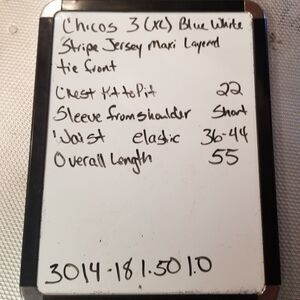 Chicos 3 (XL) Blue White
Stripe Jersey Maxi Layered
tie front
Chest Pit to Pit 22
Sleeve from shoulder Short
Waist elastic 36-44
Overall Length 55
3014-181.501.0